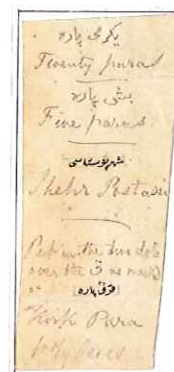 یکرمی پاره
Twenty paras
بش پاره
Five paras
شهر پوسته سی
Shehr Postassi
Put in the two dots
over the ق as mark'd
قرق پاره
Kirk Para
forty paras